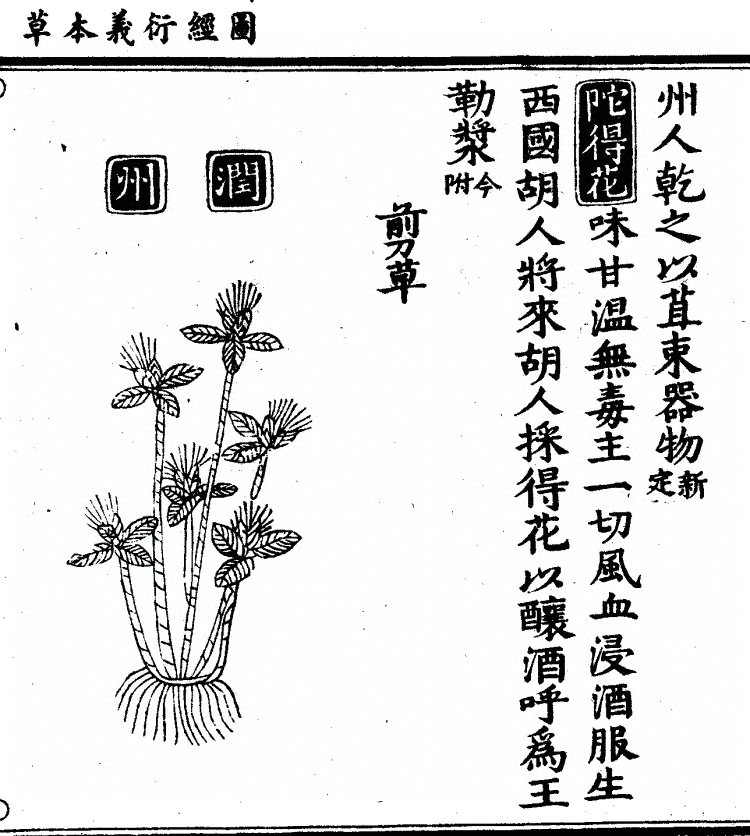 圖經衍義本草
州人乾之以苴束器物新定
陀得花味甘溫無毒主一切風血浸酒服生
西國胡人將來胡人採得花以釀酒呼爲王
勒漿今附
剪草
潤州